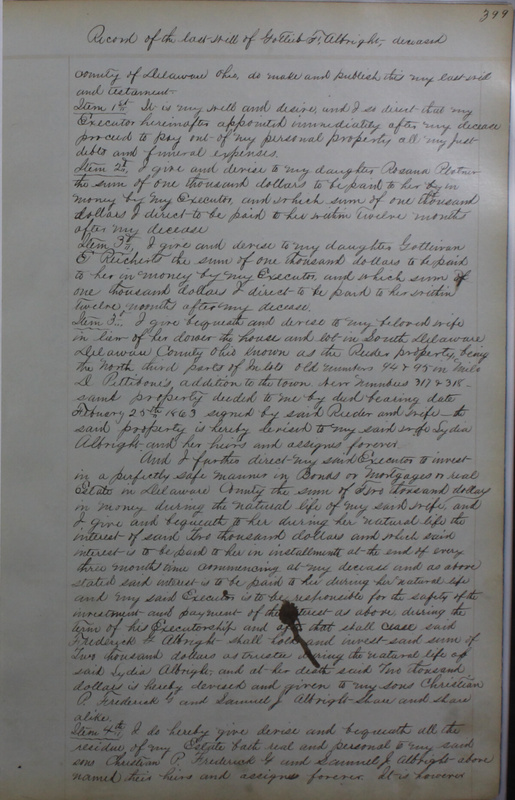 399
Record of the last will of Gottlieb F. Albright, deceased
county of Delaware Ohio, do make and publish this my last will
and testament
Item 1st It is my will and desire, and I so direct that my
Executor hereinafter appointed immediately after my decease
proceed to pay out of my personal property all my just
debts and funeral expenses.
Item 2d, I give and devise to my daughter Rosana
the sum of one thousand dollars to be paid to her by in
money by my Executor, and which sum of one thousand
dollars I direct to be paid to her within twelve months
after my decease
Item 3d, I give and devise to my daughter
E. Reichert the sum of one thousand dollars to be paid
to her in money by my Executor, and which sum of
one thousand dollars I direct to be paid to her within
twelve months after my decease.
Item 3d. I give bequeath and devise to my beloved wife
in lieu of her dower the house and lot in South Delaware
Delaware County Ohio known as the Reeder property, being
the North third parts of Inlots old numbers 94 & 95 in
D. Pettibone's, addition to the town new numbers 317 & 318
said property deeded to me by deed bearing date
February 25th 1863 signed by said Reeder and wife the
said property is hereby devised to my said wife Lydia
Albright and her heirs and assigns forever
And I further direct my said Executor to invest
in a perfectly safe manner in Bonds or Mortgages or real
Estate in Delaware County the sum of Two thousand dollars
in money during the natural life of my said wife, and
I give and bequeath to her during her natural life the
interest of said Two thousand dollars and which said
interest is to be paid to her in installments at the end of every
three months time commencing at my decease and as above
stated said interest is to be paid to her during her natural life
and my said Executor is to be responsible for the safety of the
investment and payment of the interest as above during the
term of his Executorship and after that shall cease said
Frederick G Albright shall hold and invest said sum of
Two thousand dollars as trustee during the natural life of
said Lydia Albright, and at her death said Two thousand
dollars is hereby devised and given to my sons Christian
P. Frederick G and Samuel J. Albright share and share
alike.
Item 4th, I do hereby give devise and bequeath all the
residue of my Estate both real and personal to my said
sons Christian P. Frederick G and Samuel J. Albright above
named their heirs and assigns forever. It is however